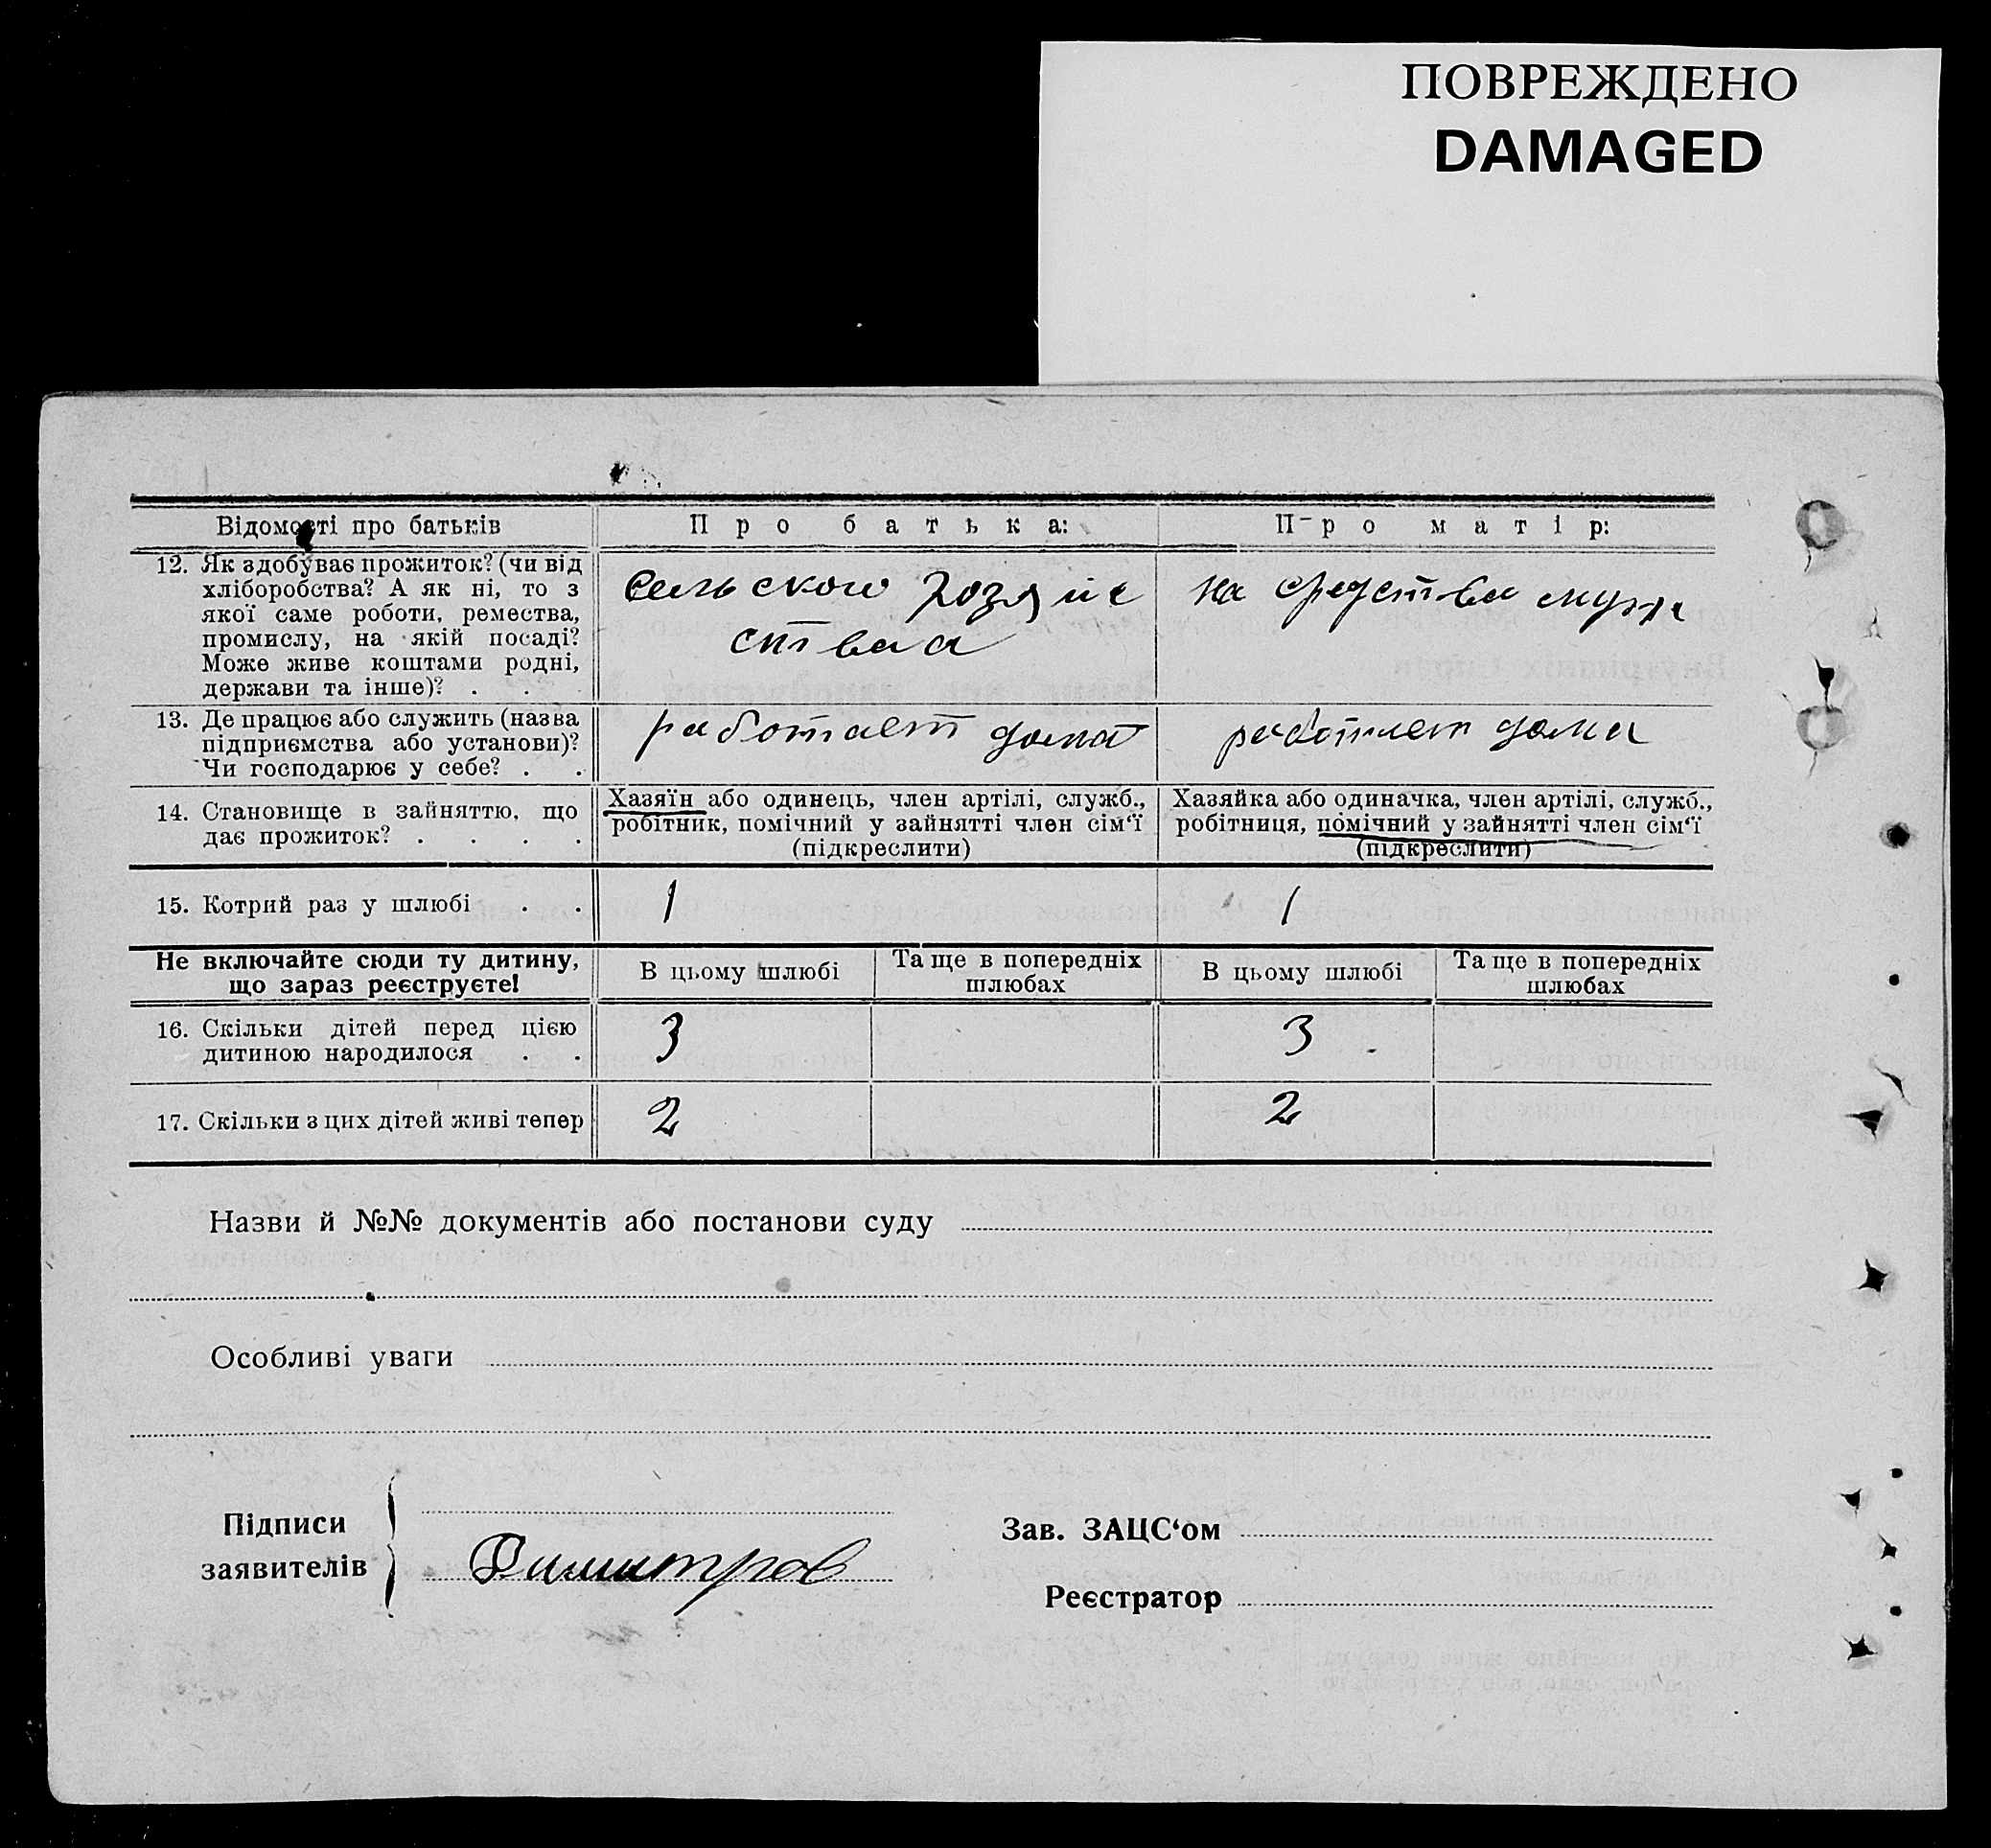 ПОВРЕЖДЕНО
DAMAGED
Відомості про батьків
Про батька:
Про матір:
12. Як здобуває прожиток? (чи від
хліборобства? А як ні, то з
якої саме роботи, ремества,
промислу, на якій посаді?
Може живе коштами родні,
держави та інше)? . . .
сельского хозяйс
ства
на средства мужа
13. Де працює або служить (назва
підприємства або установи)?
Чи господарює у себе? . .
работает дома
работает дома
14. Становище в зайняттю, що
дає прожиток? . . . .
Хазяїн або одинець, член артілі, служб.,
робітник, помічний у зайнятті член сім‘ї
(підкреслити)
Хазяйка або одиначка, член артілі, служб.,
робітниця, помічний у зайнятті член сім‘ї
(підкреслити)
15. Котрий раз у шлюбі . .
1
1
Не включайте сюди ту дитину,
що зараз реєструєте!
В цьому шлюбі
Та ще в попередніх
шлюбах
В цьому шлюбі
Та ще в попередніх
шлюбах
16. Скільки дітей перед цією
дитиною народилося . .
3
3
17. Скільки з цих дітей живі тепер
2
2
Назви й №№ документів або постанови суду
Особливі уваги
Підписи
заявителів
Димитров
Зав. ЗАЦС‘ом
Реєстратор